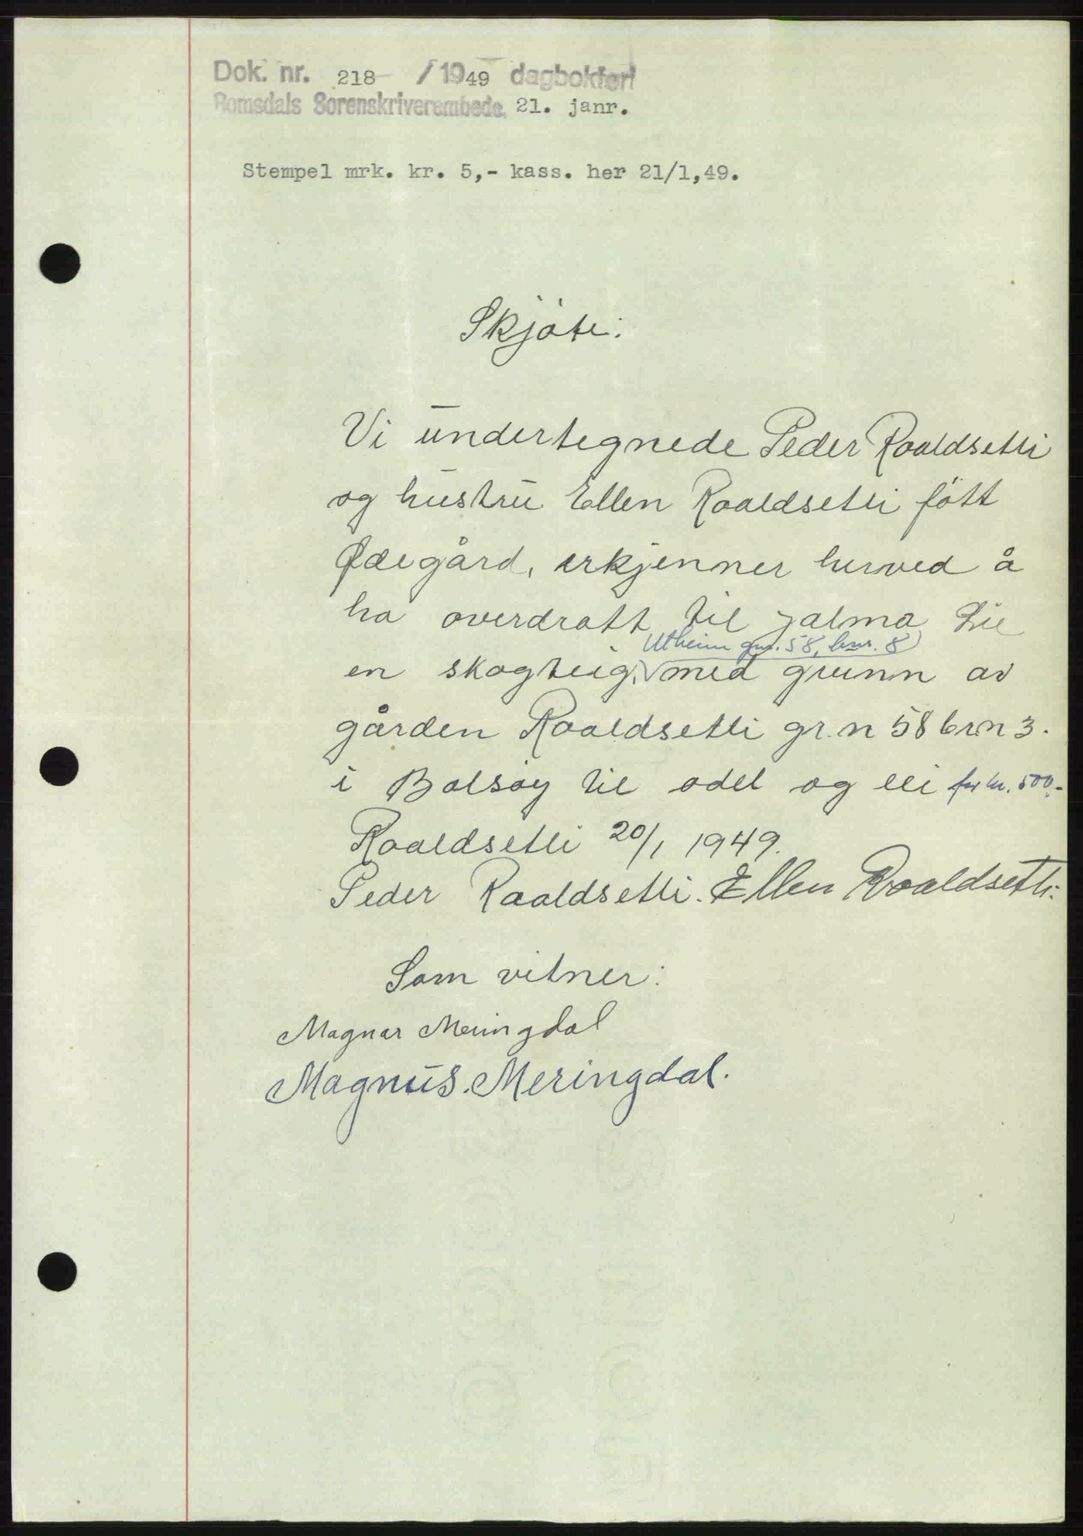 Dok. nr. 218 / 1949 dagbokført
Romsdals Sorenskriverembede, 21. janr.
Stempel mrk. kr. 5,- kass. her 21/1,49.
Skjöte:
Vi undertegnede Peder Roaldsetli
og hustru Ellen Roaldsetli fött
Ödegård, erkjenner herved å
ha overdratt til Jalma Lie
Utheim gnr. 58, bnr. 8
en skogteig, med grunn av
gården Roaldsetli gr.n 58 brn 3.
i Bolsöy til odel og eie for kr. 500.-
Roaldsetli 20/1 1949.
Peder Roaldsetli. Ellen Roaldsetli.
Som vitner:
Magnar Meringdal
Magnus Meringdal.